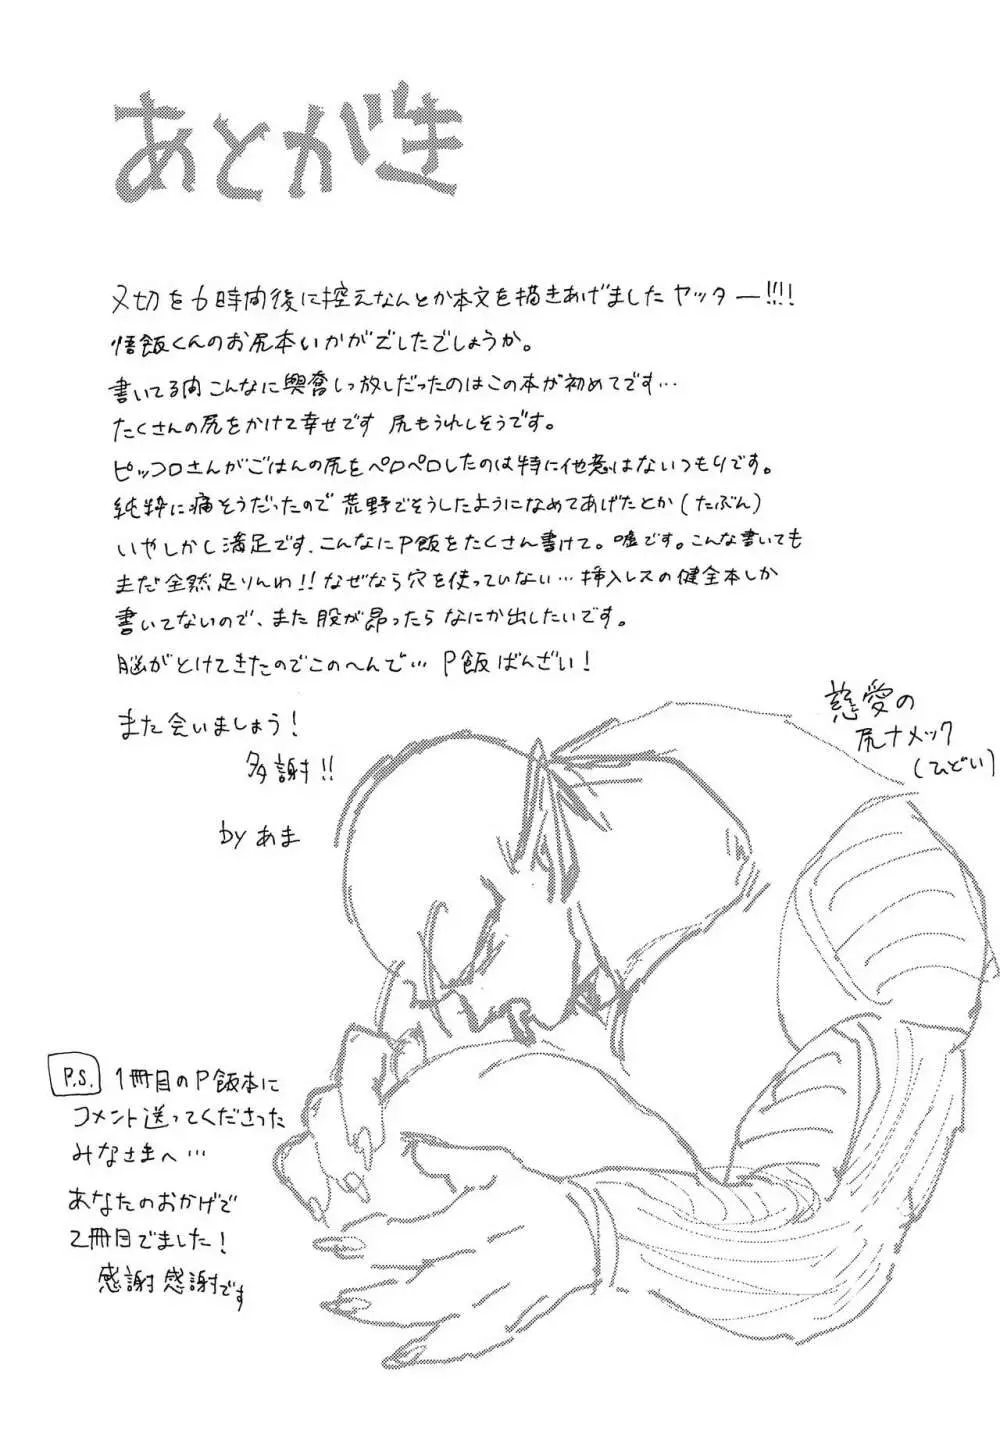 あとがき
〆切を6時間後に控えなんとか本文を描きあげましたヤッター!!!!
悟飯くんのお尻本いかがでしたでしょうか。
書いてる内こんなに興奮しっ放しだったのはこの本が初めてです…
たくさんの尻をかけて幸せです 尻もうれしそうです。
ピッコロさんがごはんの尻をペロペロしたのは特に他意はないつもりです。
純粋に痛そうだったので荒野でそうしたようになめてあげたとか(たぶん)
いやしかし満足です、こんなにP飯をたくさん書けて。嘘です。こんな書いても
まだ全然足りんわ!!なぜなら穴を使っていない…挿入レスの健全本しか
書いてないので、また股が昂ったらなにか出したいです。
脳がとけてきたのでこのへんで… P飯ばんざい!
また会いましょう!
多謝!!
by あま
慈愛の
尻ナメック
(ひどい)
P.S. 1冊目のP飯本に
コメント送ってくださった
みなさまへ…
あなたのおかげで
2冊目でました!
感謝感謝です